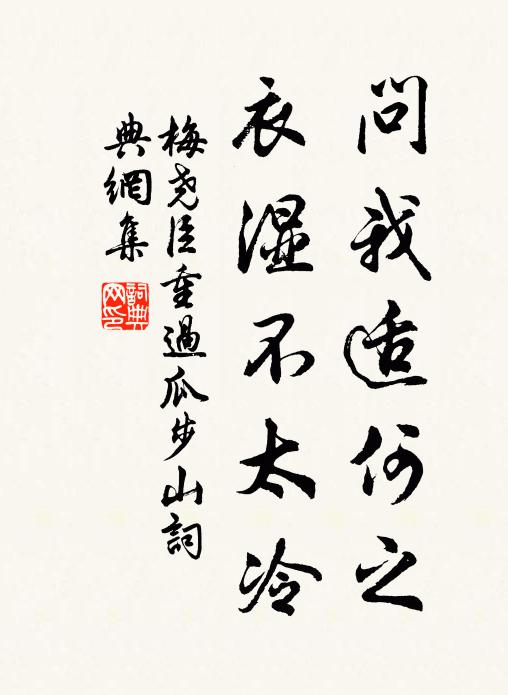 問我適何之
衣濕不太冷
梅尧臣重過瓜步山詞
典網集
詞典
网印